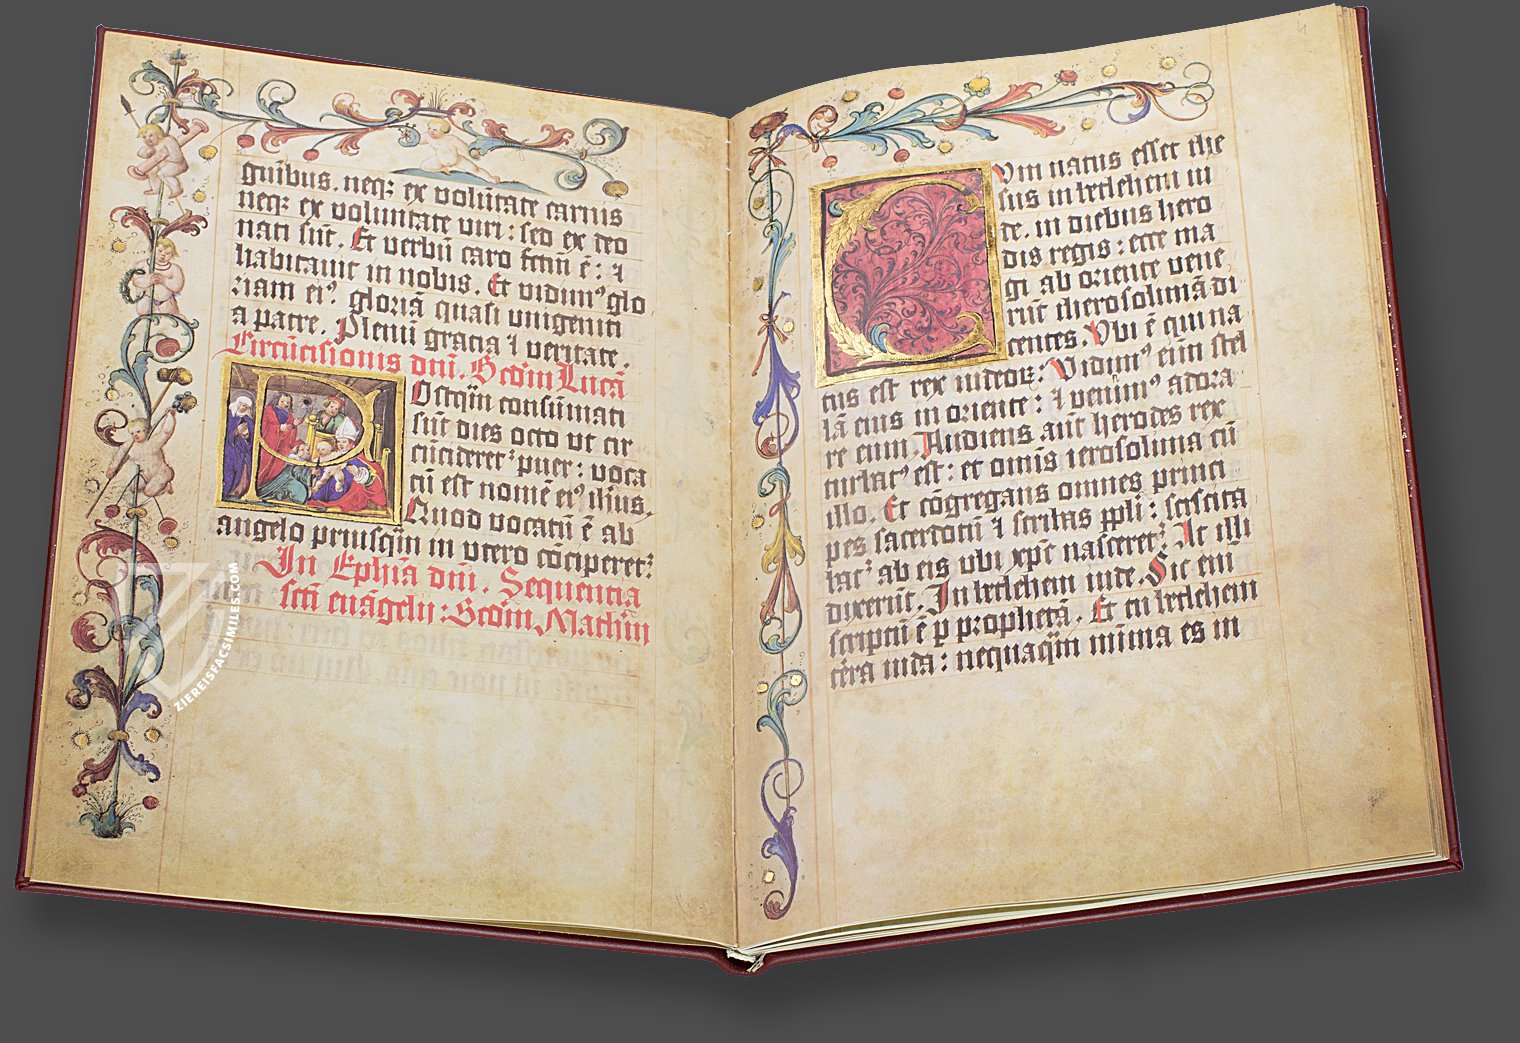 guībus. neq; ex volūtate carnis
neq; ex voluntate viri: sed ex deo
nati sūt. Et verbū caro fctm̄ ē: ⁊
habitauit in nobis. Et vidim⁹ glo
riam ei⁹. gloriā quasi vnigeniti
a patre. Plenū gracia ⁊ veritate.
Circūcisionis dnī. Scd̄m Lucā
Ostqm̄ consūmati
sūt dies octo vt cir
cūcideret᷑ puer: voca
tū est nomē ei⁹ ihūs.
Quod vocatū ē ab
angelo priusqm̄ in vtero cōciperet᷑
In Ephīa dnī. Sequencia
scti euāgelij: Scd̄m Mathm̄
Vm natus esset ihe
sus in betlehem iu
de. in diebus hero
dis regis: ecce ma
gi ab oriente vene
rūt iherosolimā di
centes. Vbi ē qui na
tus est rex iudeoꝝ: Vidim⁹ em̄ stel
lā eius in oriente: ⁊ venim⁹ adora
re eum. Audiens aūt herodes rex
turbat⁹ est: et omīs ierosolima cū
illo. Et cōgregans omnes princi
pes sacerdotū ⁊ scribas ppli: sciscita
bat᷑ ab eis vbi xpē nasceret᷑. At illi
dixerūt. In betlehem iude. Sic em̄
scriptū ē p prophetā. Et tu betlehem
terra iuda: nequaqm̄ minia es in
ZIEREISFACSIMILES.COM